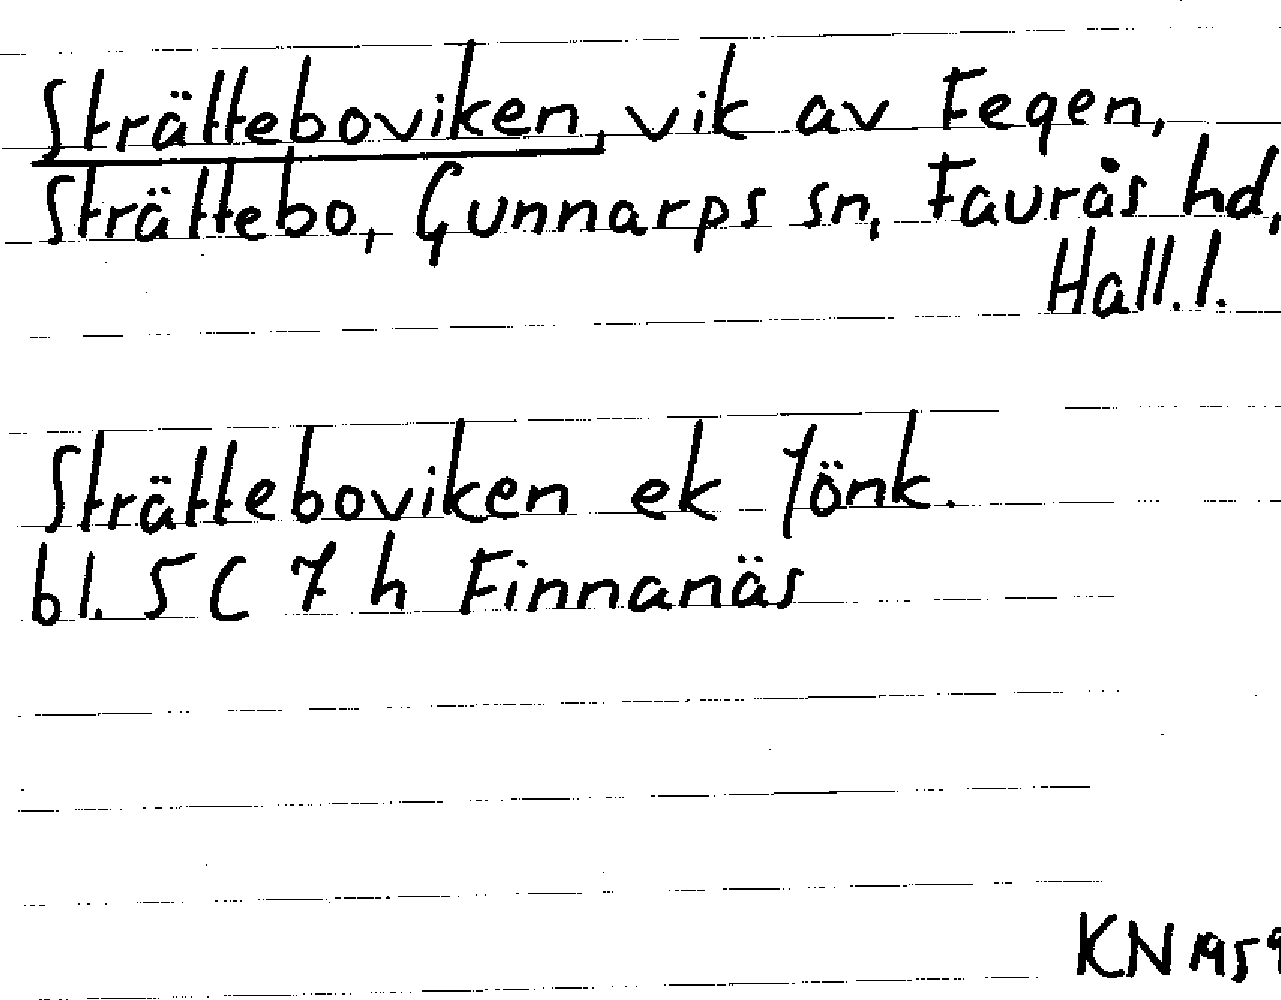 Strätteboviken, vik av Fegen,
Strättebo, Gunnarps sn, Faurås hd,
Hall. l.
Strätteboviken ek Jönk.
bl. 5 C 7 h Finnanäs
KN 1959